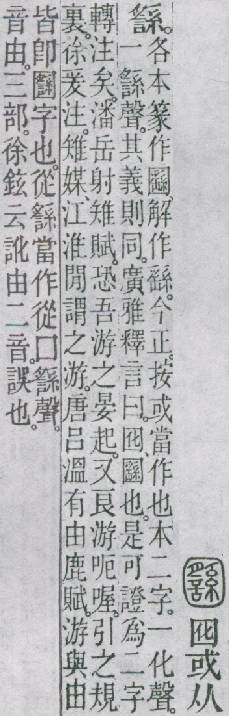 𡈙囮或从
䌛。
各本篆作𡈙。解作䌛。今正。按或當作也本二字。一化聲。
一䌛聲。其義則同。廣雅釋言曰。囮、𡈙也。是可證爲二字
轉注矣。潘岳射雉賦。恐吾游之晏起。又良游呃喔。引之規
裏。徐爰注。雉媒江淮閒謂之游。唐呂溫有由鹿賦。游與由
皆卽𡈙字也。從䌛當作從囗䌛聲。
音由。三部。徐鉉云訛由二音。誤也。